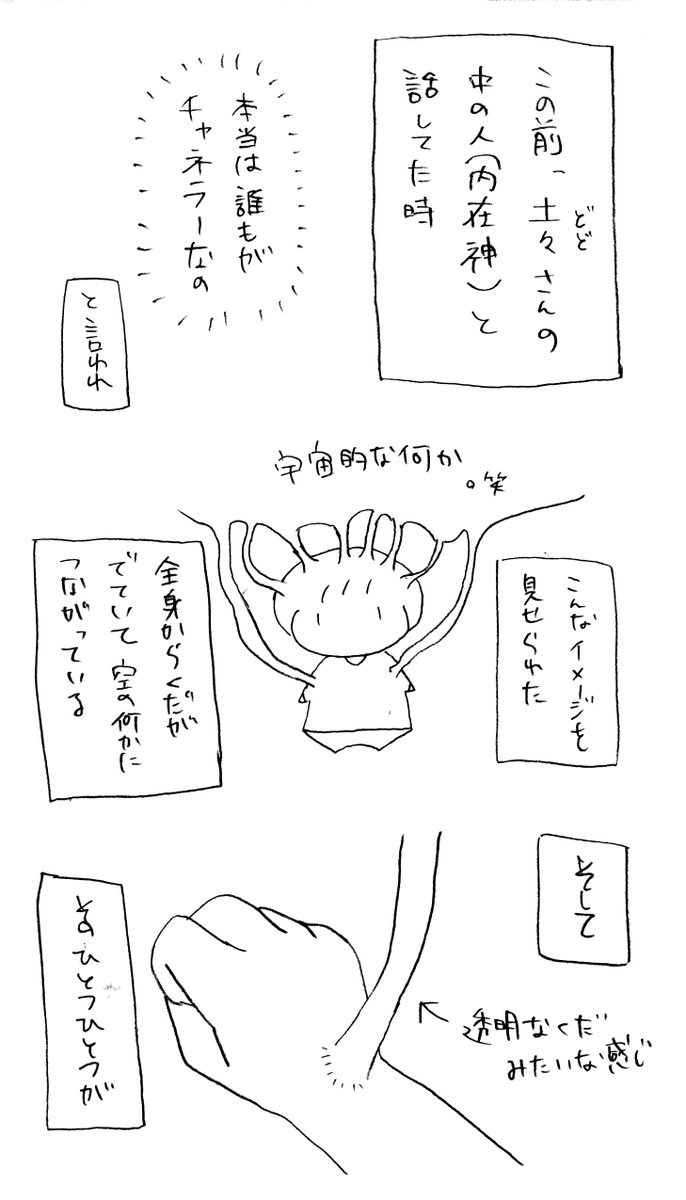 この前、土々さんの
どど
中の人(内在神)と
話してた時
本当は誰もが
チャネラーなの
と言われ
宇宙的な何か
。笑
こんなイメージを
見せられた
全身からくだが
でていて空の何かに
つながっている
そして
透明なくだ
みたいな感じ
そのひとつひとつが